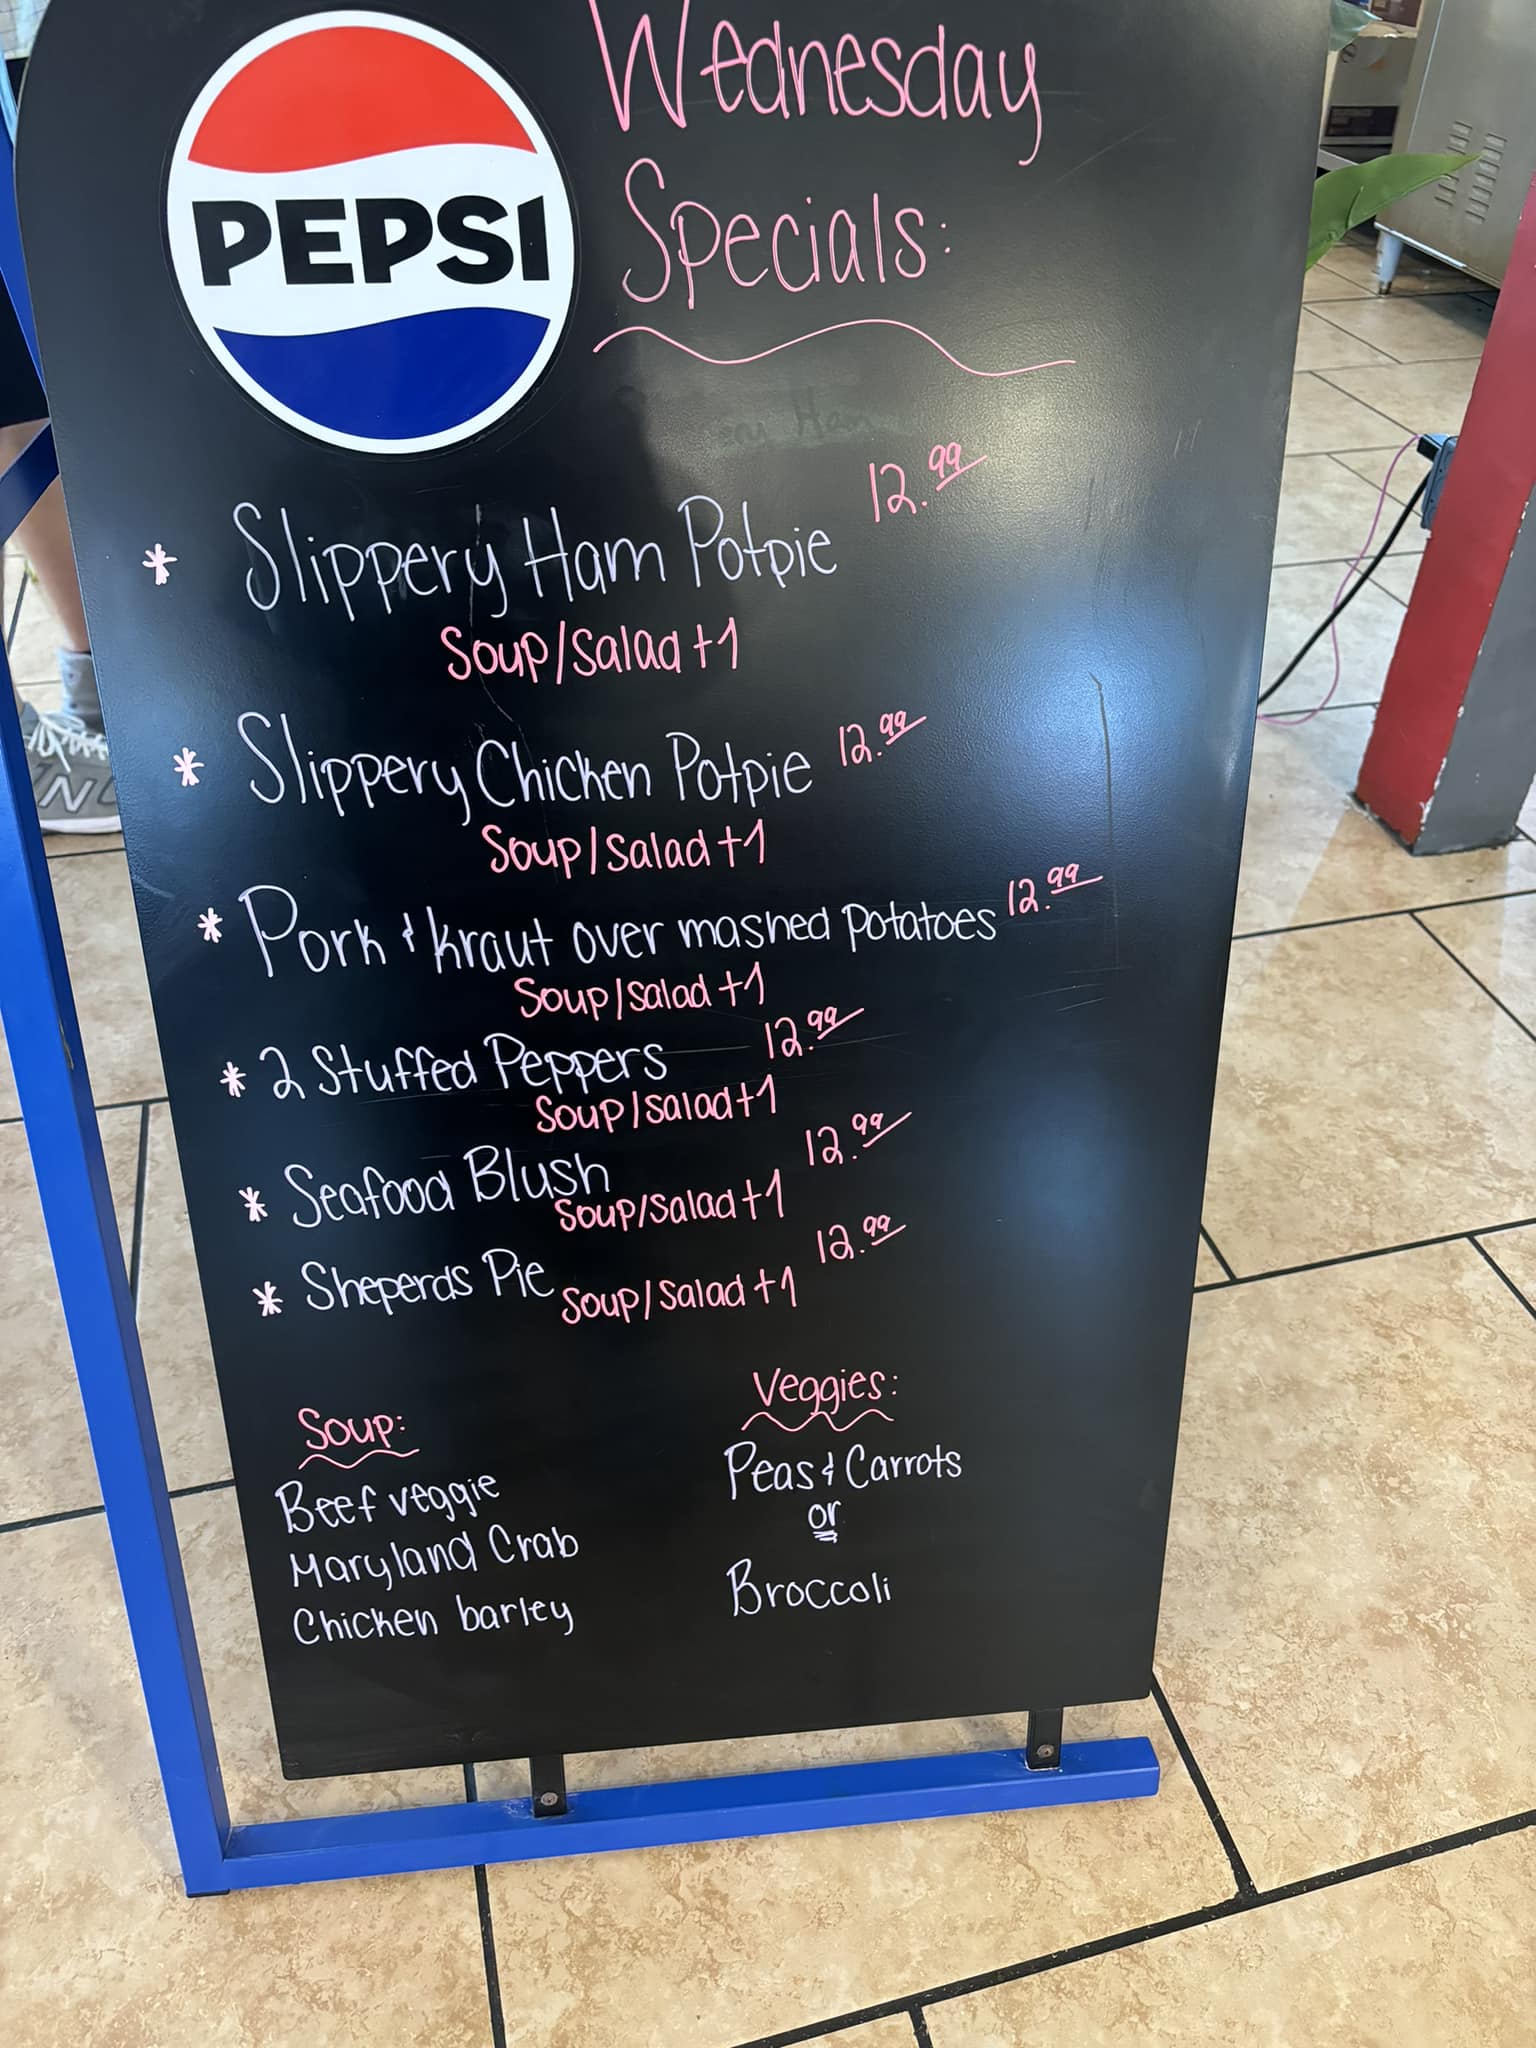 PEPSI
Wednesday
Specials:
* Slippery Ham Potpie 12.99
Soup/Salad +1
* Slippery Chicken Potpie 12.99
Soup/Salad +1
* Pork & kraut over mashed potatoes 12.99
Soup/Salad +1
* 2 Stuffed Peppers 12.99
Soup/Salad +1
* Seafood Blush 12.99
Soup/Salad +1
* Sheperds Pie 12.99
Soup/Salad +1
Soup:
Beef veggie
Maryland Crab
Chicken barley
Veggies:
Peas & Carrots
or
Broccoli